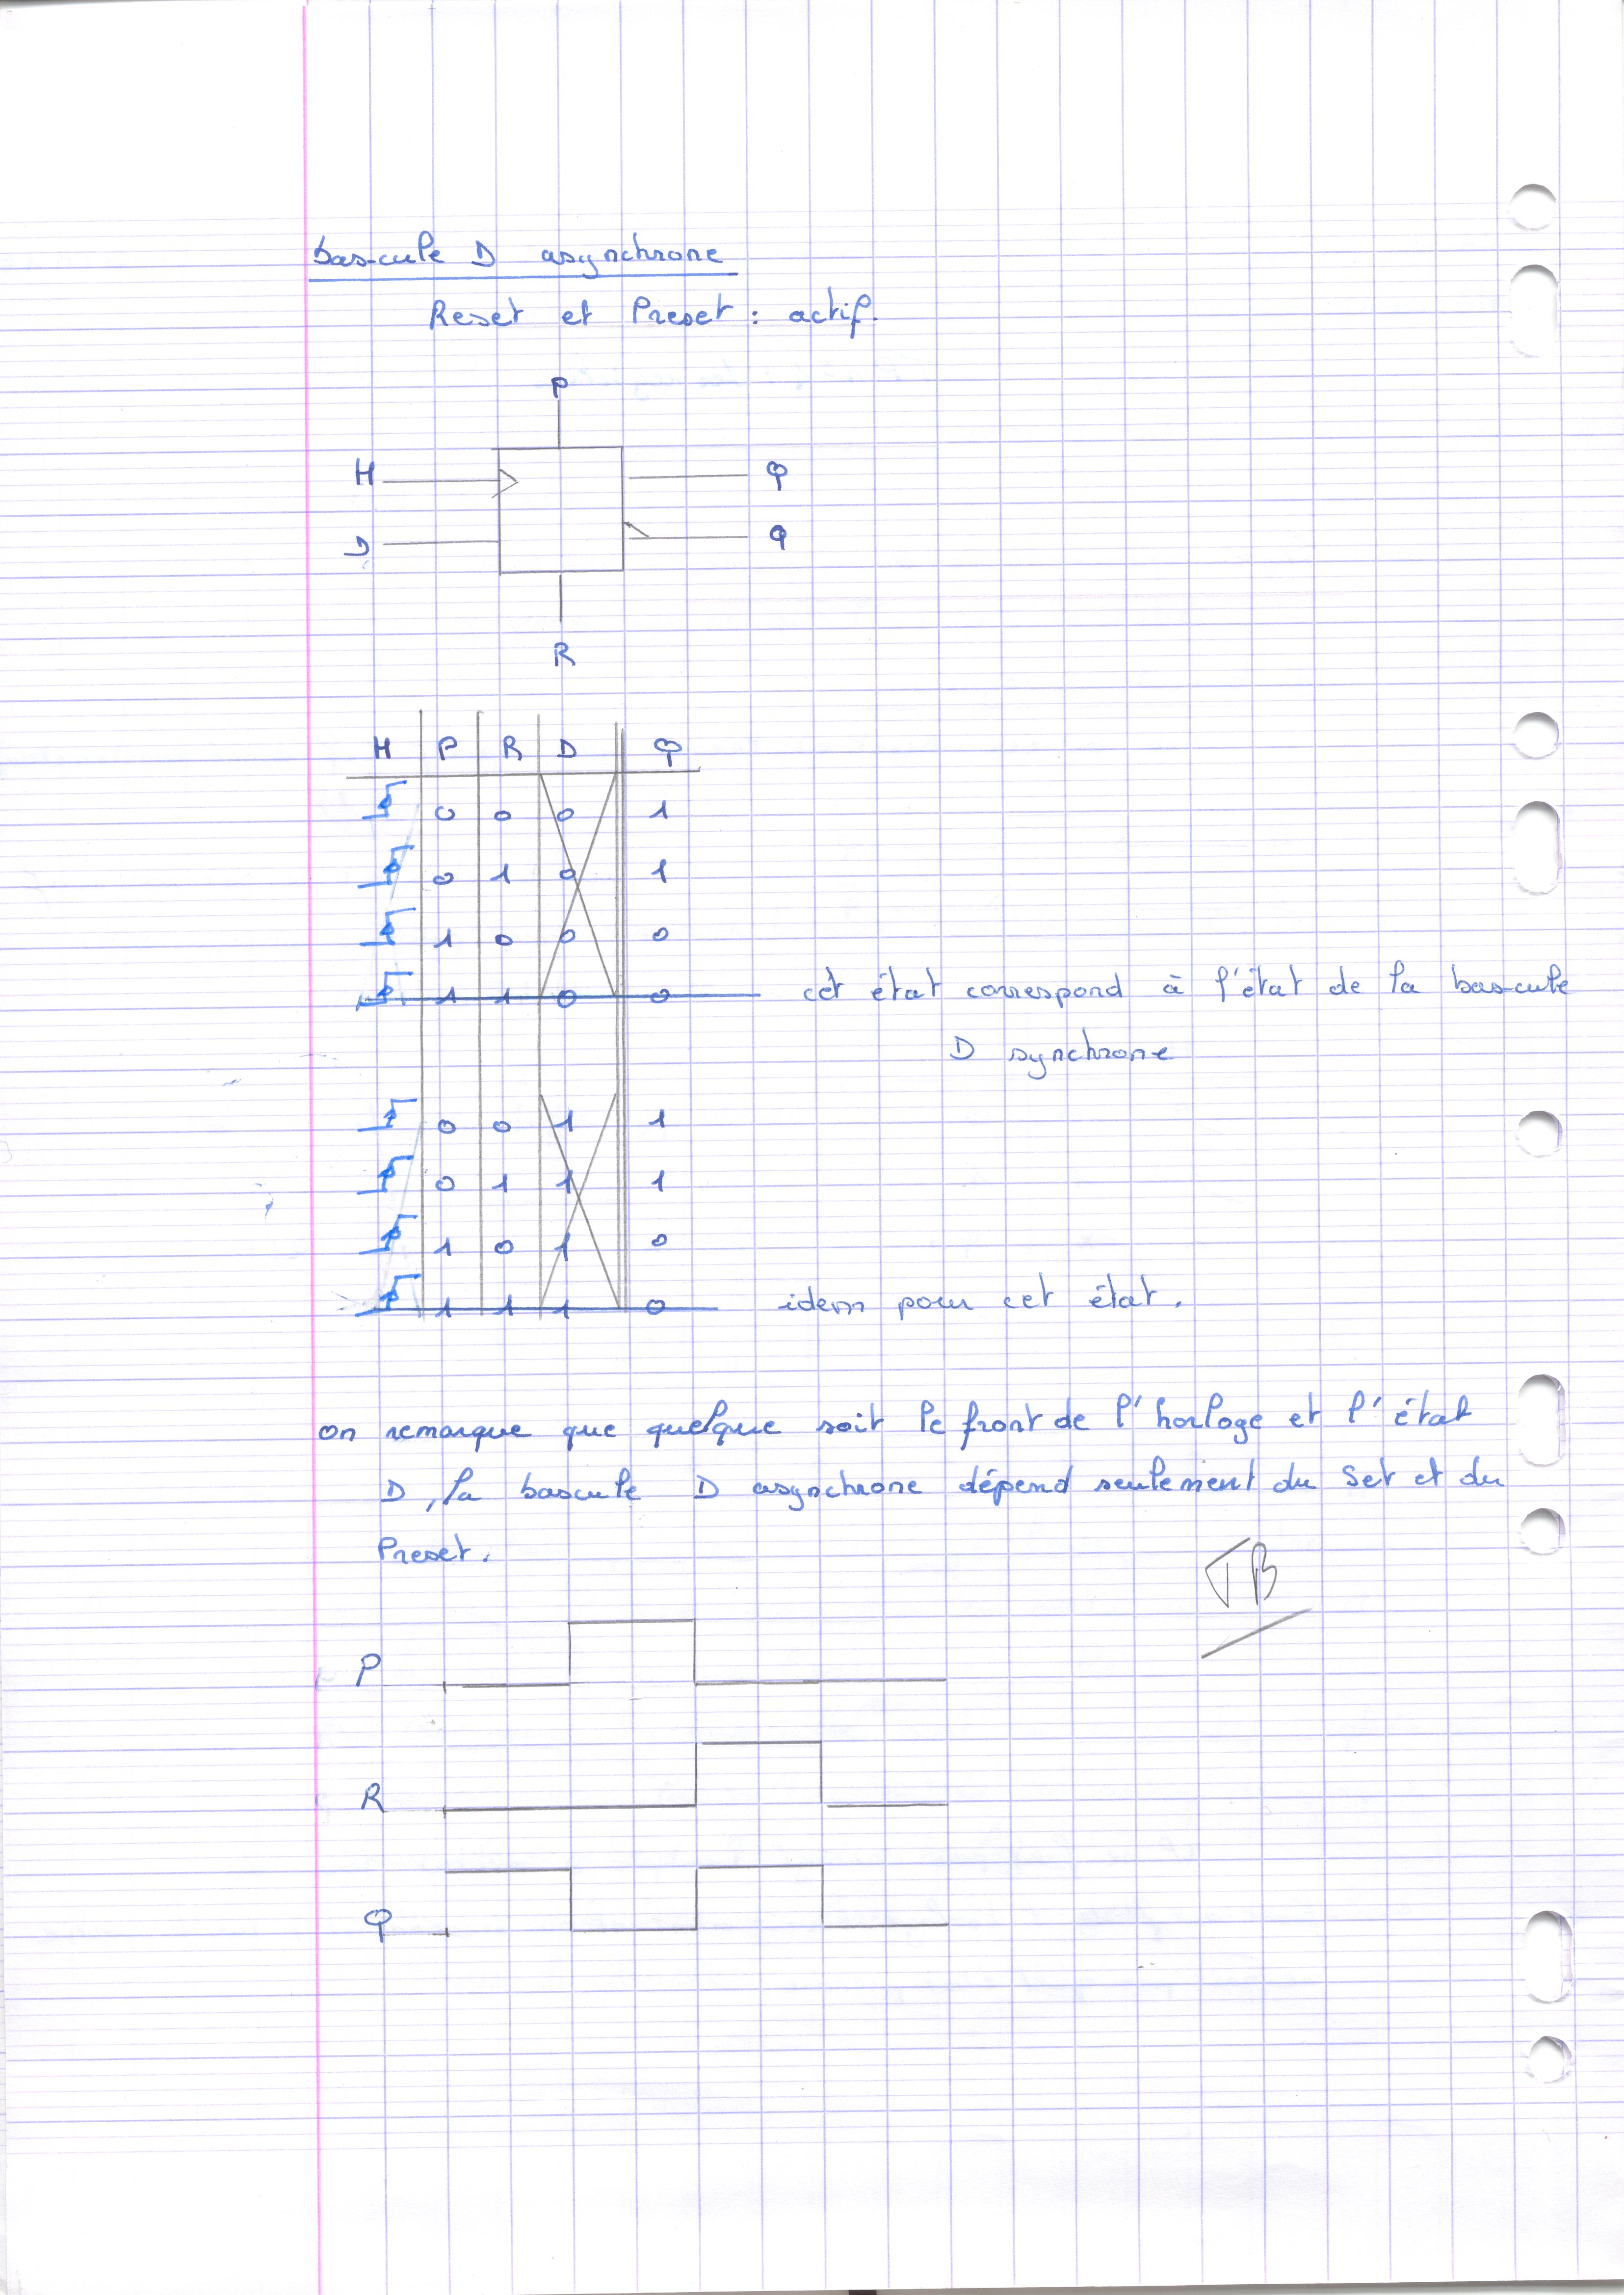 bascule D asynchrone
Reset et Preset : actif.
P
H Q
D Q
R
H P R D Q
0 0 0 1
0 1 0 1
1 0 0 0
1 1 0 0 cet état correspond à l'état de la bascule
D synchrone
0 0 1 1
0 1 1 1
1 0 1 0
1 1 1 0 idem pour cet état.
on remarque que quelque soit le front de l'horloge et l'état
D, la bascule D asynchrone dépend seulement du Set et du
Preset.
TB
P
R
Q